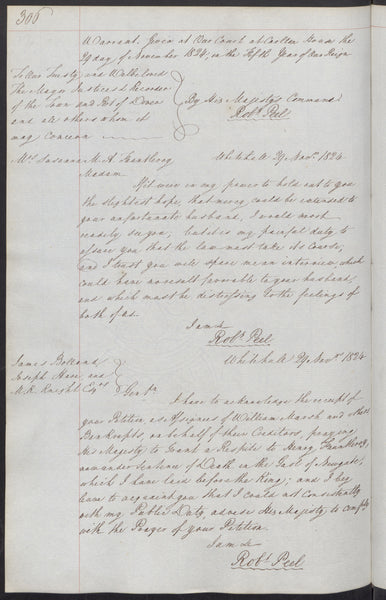 306
Warrant. Given at Our Court at Carlton House the
29 day of November 1824, in the fifth Year of Our Reign
To Our Trusty and Welbeloved
The Mayor Justices & Recorder
of the town and Port of Dover
and all others whom it
may concern
By His Majestys Command
Robt. Peel
Mrs. Susanna M. A. Fauntleroy
Whitehall 29 Novr. 1824
Madam
If it were in my power to hold out to you
the slightest hope, that mercy could be extended to
your unfortunate husband, I would most
readily see you; but it is my painful duty to
assure you that the law must take its course,
and I trust you will spare me an interview, which
could have no result favorable to your husband,
and which must be distressing to the feelings of
both of us.
I am &
Robt. Peel
Whitehall 29 Novr. 1824
James
Joseph Hare, and
M. R. Knight Esqrs
Gentn.
I have to acknowledge the receipt of
your Petition, as Assignees of William Marsh and others
Bankrupts, on behalf of their Creditors, praying
His Majesty to Grant a Respite to Henry Fauntleroy,
now under Sentence of Death in the Gaol of Newgate,
which I have laid before the King; and I beg
leave to acquaint you that I could not consistently
with my Public Duty, advise His Majesty to comply
with the Prayer of your Petition.
I am &
Robt. Peel